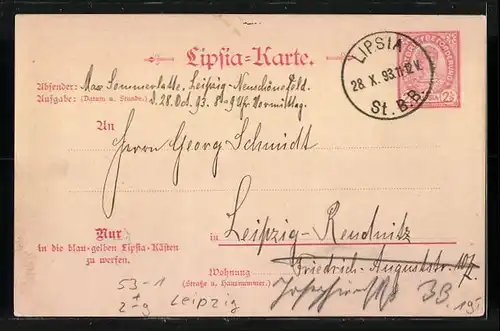 Lipsia-Karte.
LIPSIA
28. X. 93. 11-12 V.
St. B. B.
Absender: Max Sommerlatte, Leipzig-Neuschönefeld.
Aufgabe: (Datum u. Stunde.) d. 28. Oct. 93. 8-9 Uhr Vormittag.
An
Herrn Georg Schmidt
Nur
in die blau-gelben Lipsia-Kästen
zu werfen.
in Leipzig-Reudnitz
Wohnung Friedrich-Auguststr. 107.
(Straße u. Hausnummer.)
53-1
Leipzig